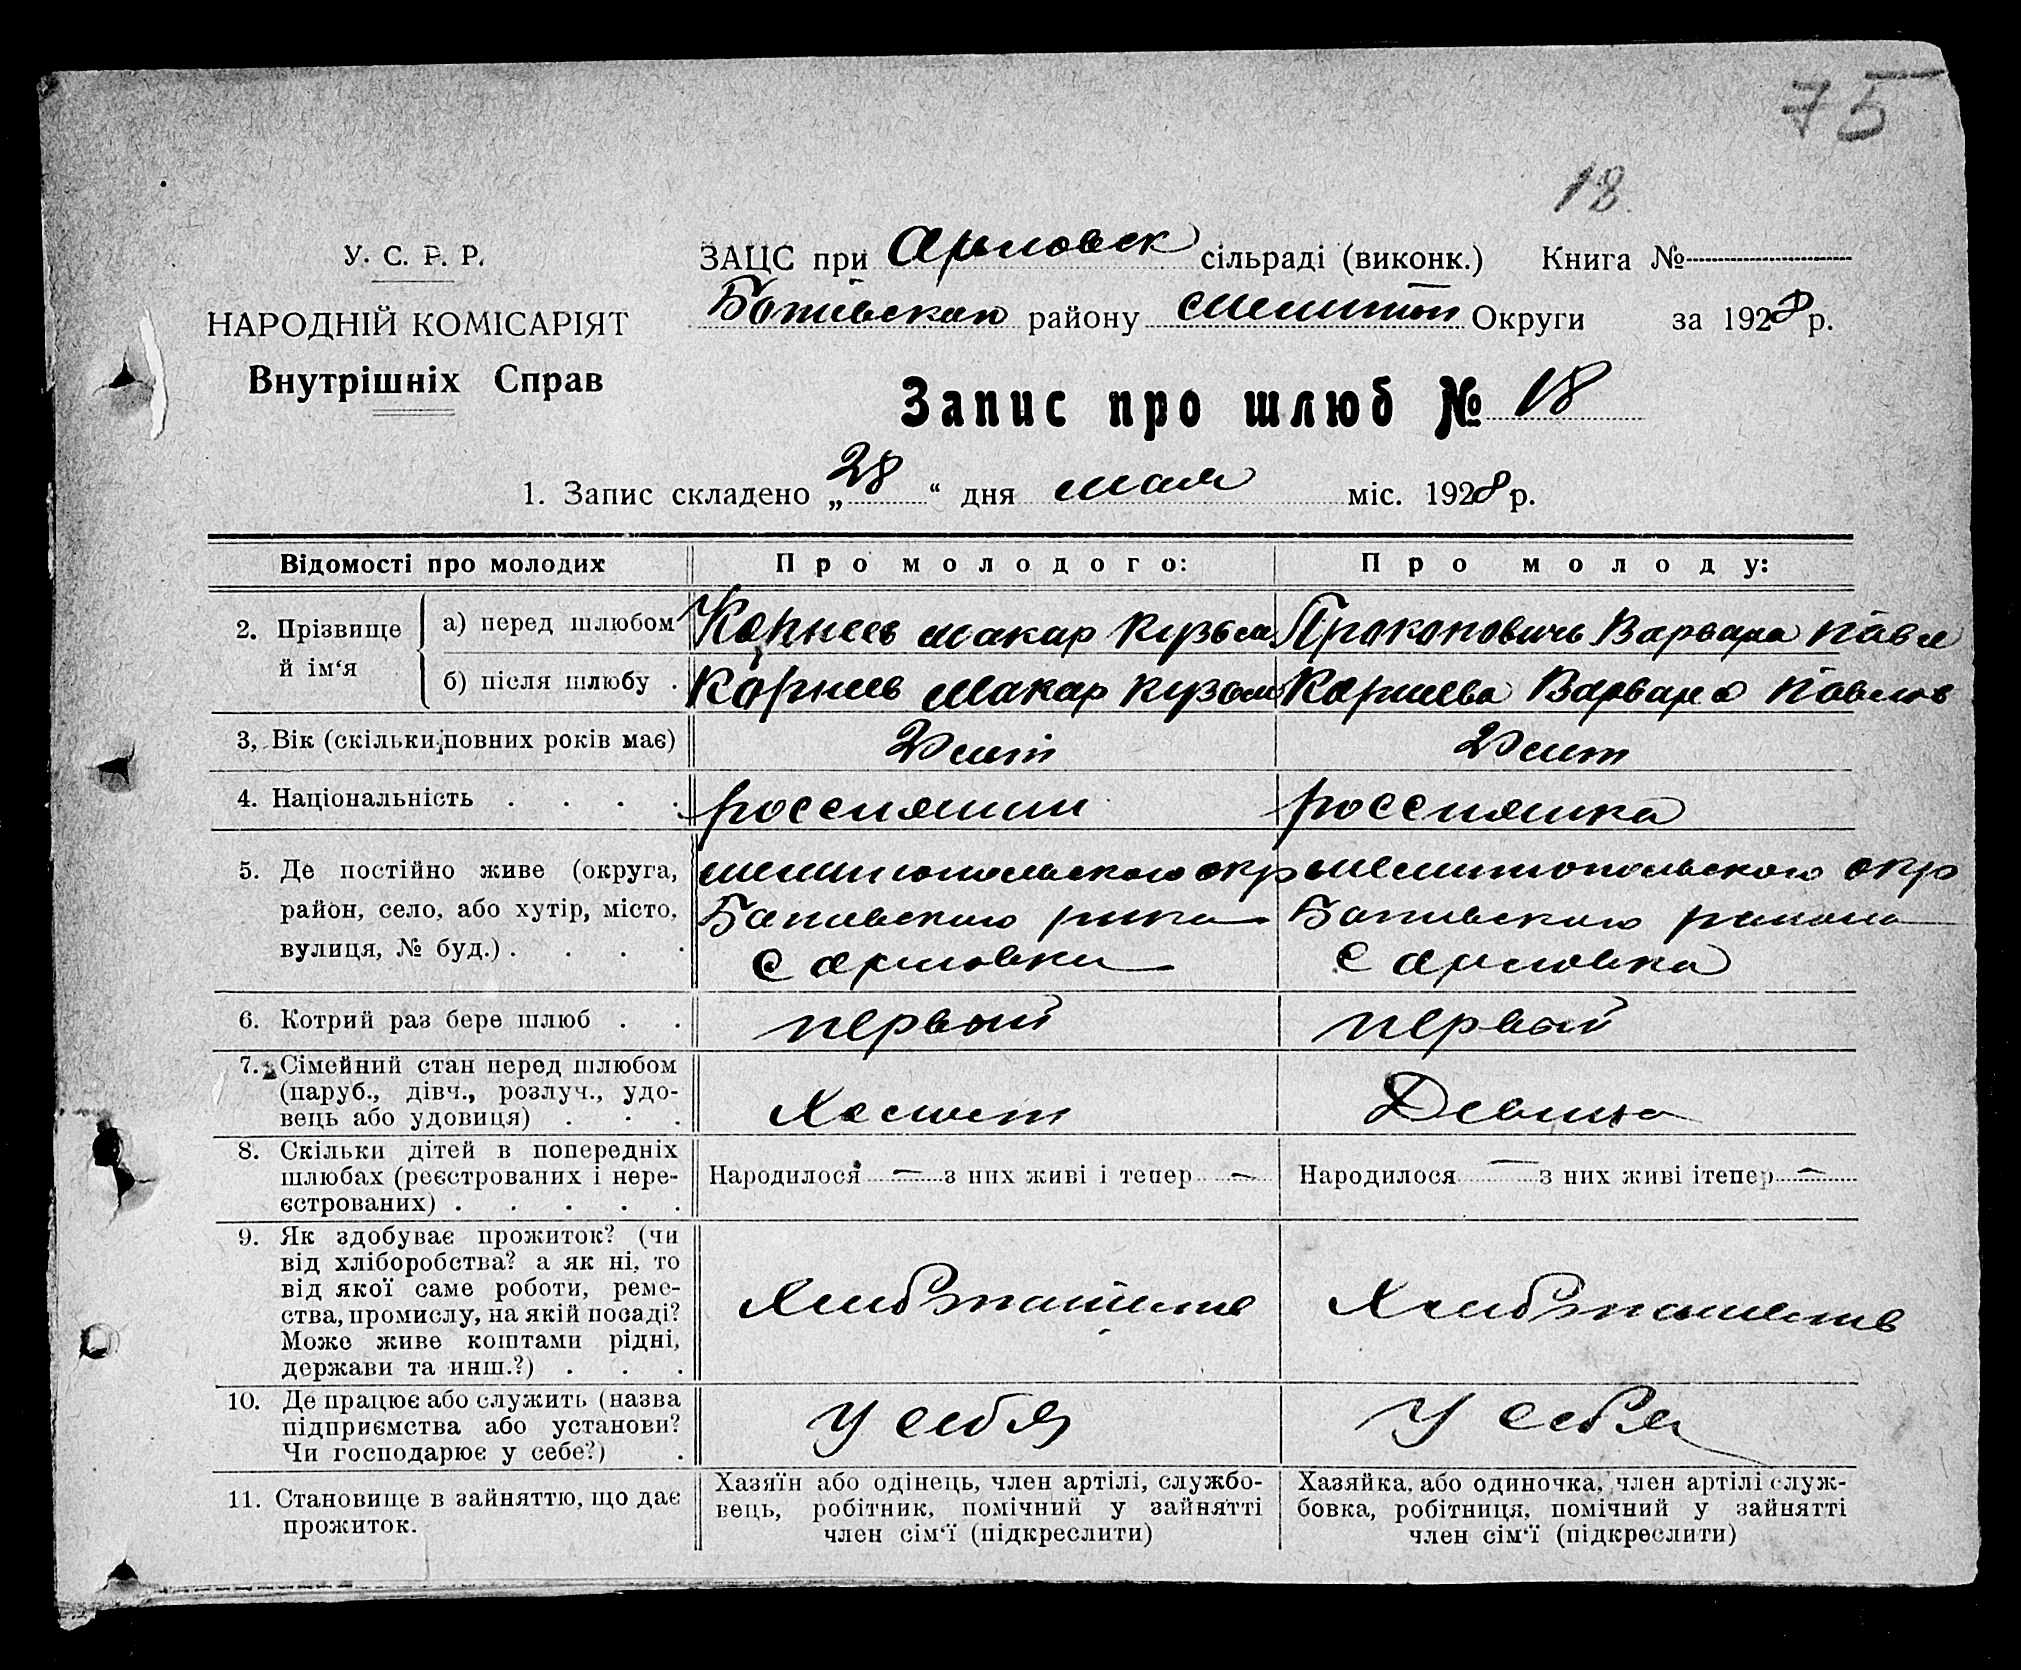 75
18
У. С. Р. Р.
НАРОДНІЙ КОМІСАРІЯТ
Внутрішніх Справ
ЗАЦС при Орловск сільраді (виконк.) Книга №
Ботіевскап району Мелитоп Округи за 1928 р.
Запис про шлюб № 18
1. Запис складено „28“ дня мая міс. 1928 р.
Відомості про молодих
Про молодого:
Про молоду:
2. Прізвище й ім‘я
а) перед шлюбом
Корнеев Макар Кузьм
Прокопович Варвара Павл
б) після шлюбу .
Корнеев Макар Кузьм
Корнеева Варвара Павлов
3. Вік (скільки повних років має)
20 лет
20 лет
4. Національність . . . .
россиянин
россиянка
5. Де постійно живе (округа,
район, село, або хутір, місто,
вулиця, № буд.) . . . .
мелитопольского окр
Ботиевского
с орловки
мелитопольского окр
Ботиевского района
с орловка
6. Котрий раз бере шлюб . .
первый
первый
7. Сімейний стан перед шлюбом
(паруб., дівч., розлуч., удо-
вець або удовиця) . . .
Холост
Девица
8. Скільки дітей в попередніх
шлюбах (реєстрованих і нере-
єстрованих) . . . . .
Народилося — з них живі і тепер —
Народилося — з них живі ітепер —
9. Як здобуває прожиток? (чи
від хліборобства? а як ні, то
від якої саме роботи, реме-
ства, промислу, на якій посаді?
Може живе коштами рідні,
держави та инш.?) . . .
Хлебопашеств
Хлебопашеств
10. Де працює або служить (назва
підприємства або установи?
Чи господарює у себе?) .
У себя
У себя
11. Становище в зайняттю, що дає
прожиток.
Хазяїн або одінець, член артілі, службо-
вець, робітник, помічний у зайнятті
член сім‘ї (підкреслити)
Хазяйка, або одиночка, член артілі служ-
бовка, робітниця, помічний у зайнятті
член сім‘ї (підкреслити)